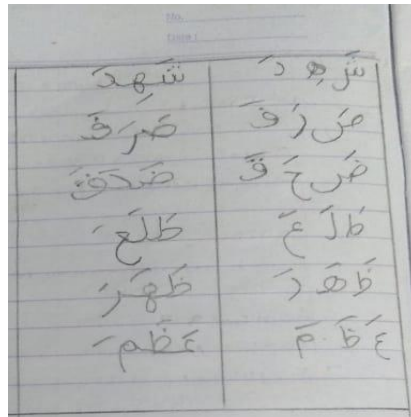 No.
Date:
شَ هِ دَ شَهِدَ
صَ رَ فَ صَرَفَ
ضَ حَ قَ ضَحَقَ
طَ لَ عَ طَلَعَ
ظَ هَ رَ ظَهَرَ
عَ ظَ مَ عَظَمَ